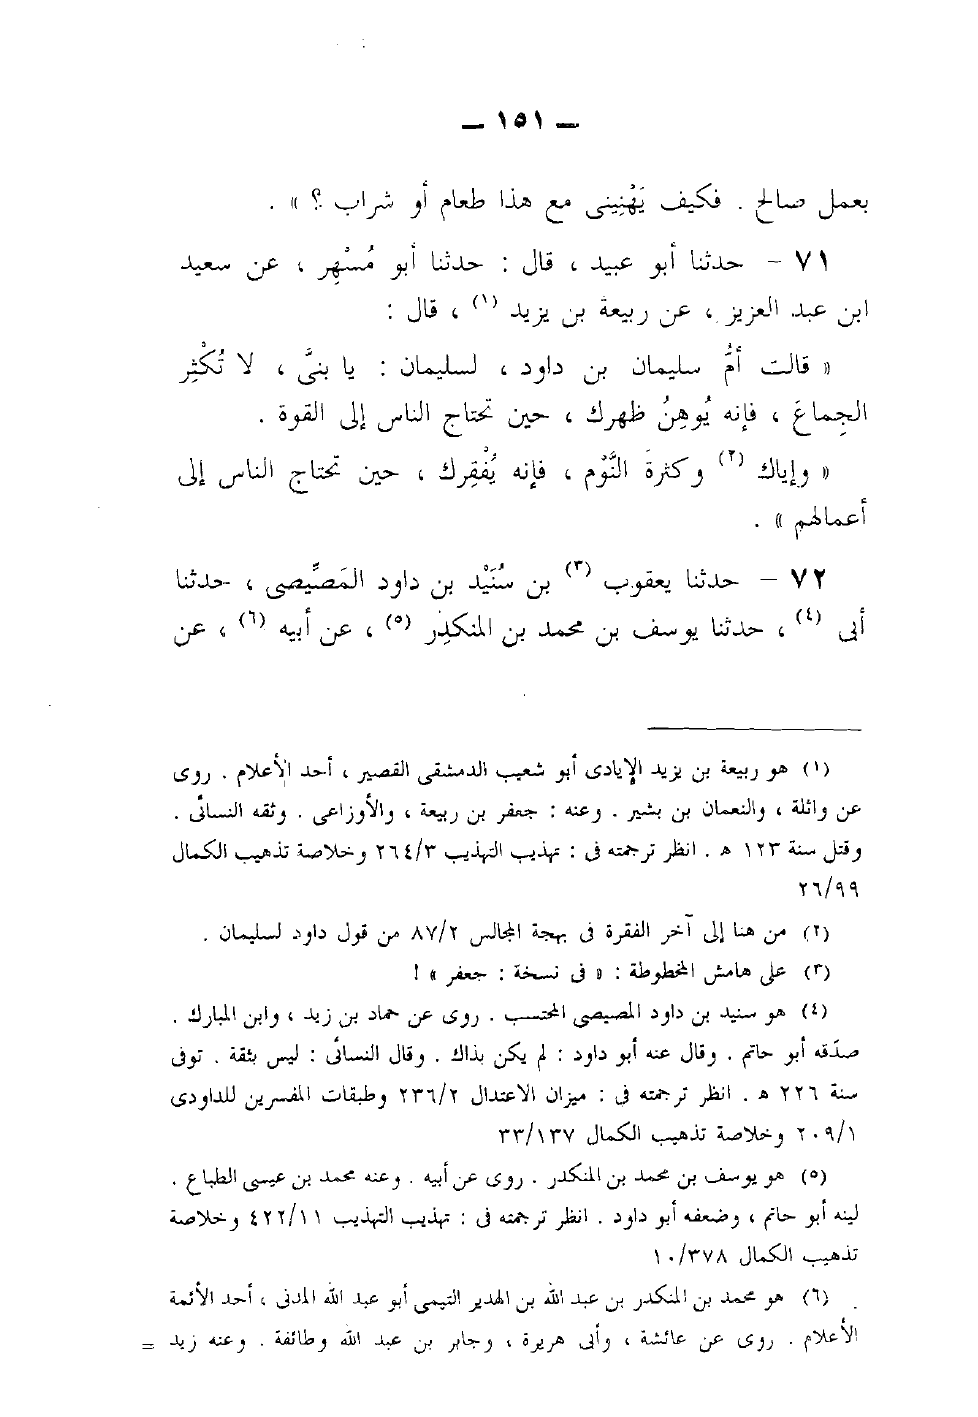 — ١٥١ —
بعمل صالح . فكيف يَهْنِينى مع هذا طعام أو شراب ؟ » .
٧١ – حدثنا أبو عبيد ، قال : حدثنا أبو مُسْهِر ، عن سعيد
ابن عبد العزيز ، عن ربيعة بن يزيد (١) ، قال :
« قالت أمُّ سليمان بن داود ، لسليمان : يا بنىَّ ، لا تُكْثِر
الجِماعَ ، فإنه يُوهِنُ ظهرك ، حين تحتاج الناس إلى القوة .
« وإياك (٢) وكثرةَ النَّوْم ، فإنه يُفْقِرك ، حين تحتاج الناس إلى
أعمالهم » .
٧٢ – حدثنا يعقوب (٣) بن سُنَيْد بن داود المَصِّيصى ، حدثنا
أبى (٤) ، حدثنا يوسف بن محمد بن المنكدِر (٥) ، عن أبيه (٦) ، عن
(١) هو ربيعة بن يزيد الإيادى أبو شعيب الدمشقى القصير ، أحد الأعلام . روى
عن واثلة ، والنعمان بن بشير . وعنه : جعفر بن ربيعة ، والأوزاعى . وثقه النسائى .
وقتل سنة ١٢٣ هـ . انظر ترجمته فى : تهذيب التهذيب ٢٦٤/٣ وخلاصة تذهيب الكمال
٢٦/٩٩
(٢) من هنا إلى آخر الفقرة فى بهجة المجالس ٨٧/٢ من قول داود لسليمان .
(٣) على هامش المخطوطة : « فى نسخة : جعفر » !
(٤) هو سنيد بن داود المصيصى المحتسب . روى عن حماد بن زيد ، وابن المبارك .
صدّقه أبو حاتم . وقال عنه أبو داود : لم يكن بذاك . وقال النسائى : ليس بثقة . توفى
سنة ٢٢٦ هـ . انظر ترجمته فى : ميزان الاعتدال ٢٣٦/٢ وطبقات المفسرين للداودى
٢٠٩/١ وخلاصة تذهيب الكمال ٣٣/١٣٧
(٥) هو يوسف بن محمد بن المنكدر . روى عن أبيه . وعنه محمد بن عيسى الطباع .
لينه أبو حاتم ، وضعفه أبو داود . انظر ترجمته فى : تهذيب التهذيب ٤٢٢/١١ وخلاصة
تذهيب الكمال ١٠/٣٧٨
(٦) هو محمد بن المنكدر بن عبد الله بن الهدير التيمى أبو عبد الله المدنى ، أحد الأئمة
الأعلام . روى عن عائشة ، وأبى هريرة ، وجابر بن عبد الله وطائفة . وعنه زيد =